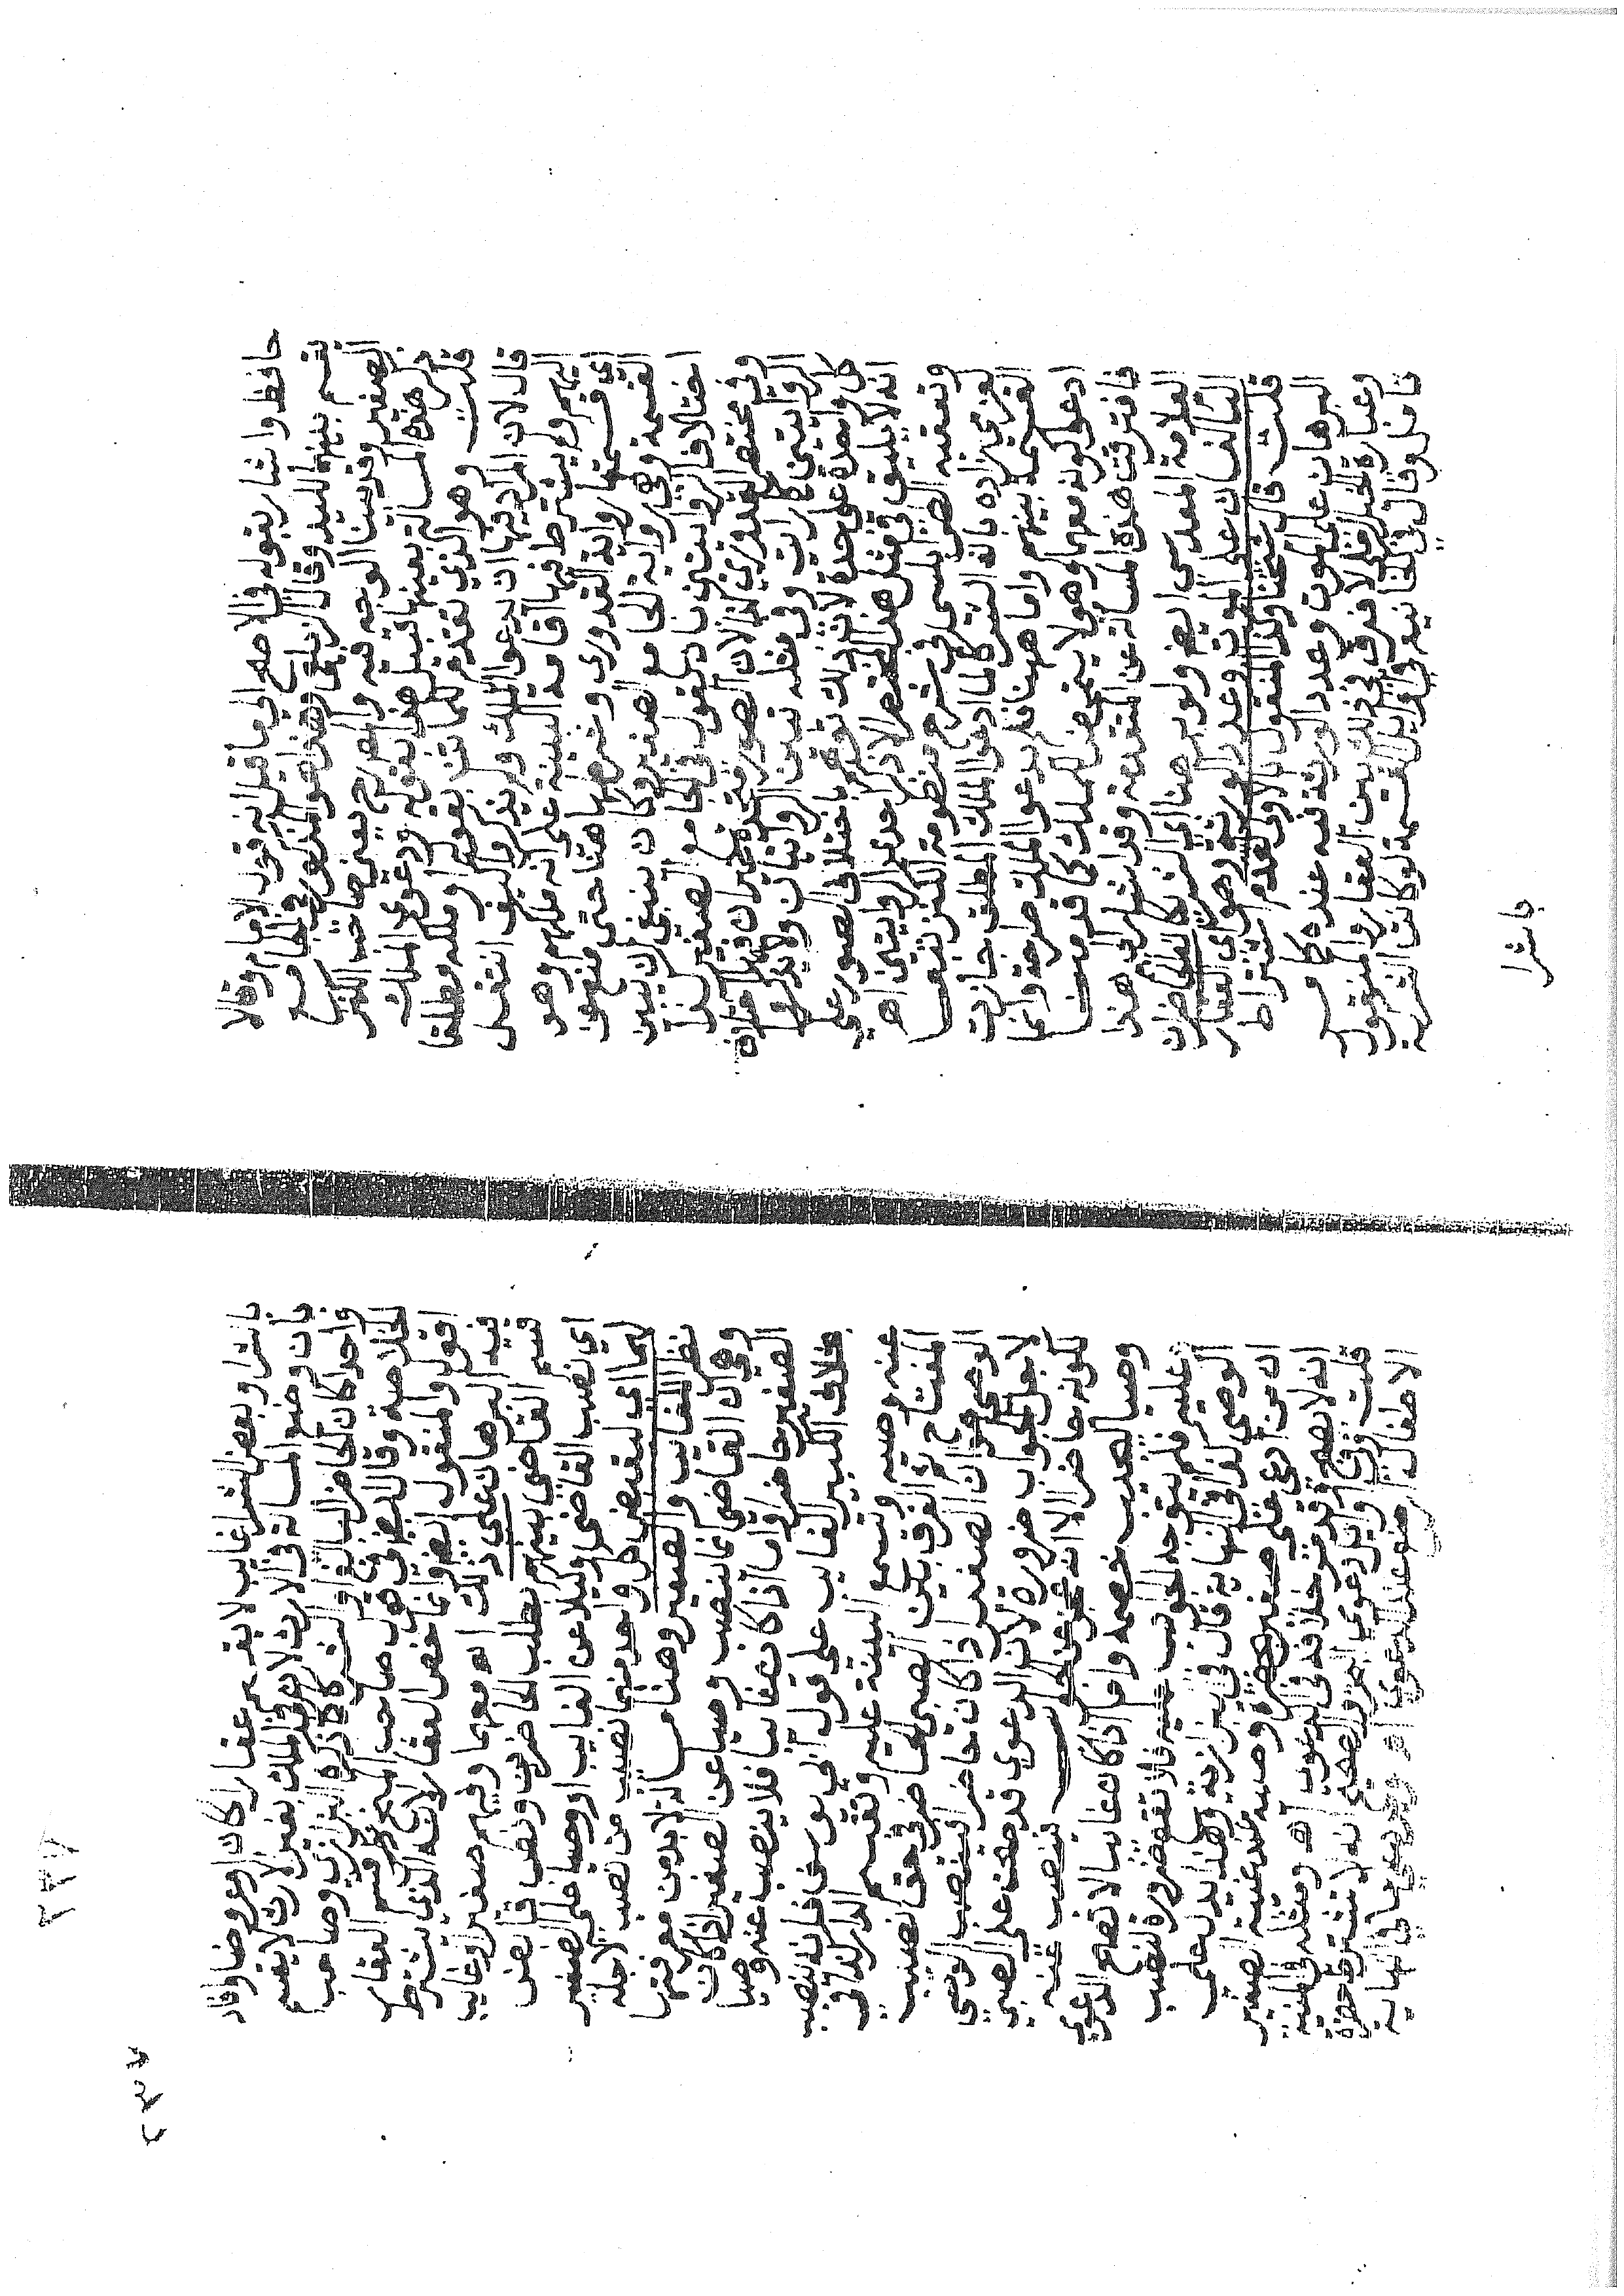 حافظ واشار بقوله في الاصح الي ما قيل انه قول الامام وقالا
تقسم بينهم لليد وقال الزيلعي وهذا هو المذكور في الجامع
الصغير وقد بينا الوجه فيه واصرح يعني صاحب الكنز
ذكر هذه المسالة بعينها قبيل هذا بقوله ودعوي الملك
قلت وهو الذي تقدم بقوله او ملكه مطلقا
قال لان المراد فيها ان يدعوا الملك ولم يذكروا كيف انتقل
اليهم ولم يشترط فيها اقامة البينة علي انه ملكهم وهو
اي قسمتها رواية القدوري وشرط هاهنا حتي منعوه
القسمة وهي رواية الجامع الصغير وكان ينبغي ان يبين
اختلاف الروايتين بان يقول في الجامع الصغير كذا
وفي مختصر القدوري كذا لان الصورة متحدة غير ان فيها اختلاف
الروايتين كما رايت وفي مثله تبين الروايتان ولا يذكرها
كل واحدة علي حدة لان ذلك يوهم باختلاف الصور علي
انه لا يليق في مثل هذا المختصر الا ذكر احدي الروايتين اه
وتعقبه في شرح منظومة الكنز تبعا
لعزمي زاده بانه ادعوا الملك المطلق جازت
القسمة بينهم واما هنا فلم يدعوا الملك صراحة وانما
ادعوا كونه معهما وهو لا يتمحض للملك كما قدمنا
فافترقت هذه المسالة عن المتقدمة وقد اشار الي هذا
العلامة المقدسي ايضا ولو برهنا اي الشريكان الحاضران
البالغان علي الموت وعدد الورثة وهو اي العقار
قلت قال شيخنا وكذا المنقول بالاولي لعدم اشتراط
البرهان علي الموت وعدد الورثة فيه عنده كما مر
وعبارة الخير الرملي لا فرق في ذلك بين العقار والمنقول
تامل وقال في الخانية في اوايل القسمة لو كانت التركة
باشرا
٢٣٧
باشرا وبعض الشركا غايب عقار كان او عروضا وافاد
بان وضع المسالة في الارث لان في الملك بغير الارث لا يقسم
واحد كان الحاضر البالغ او الشركا ذكره البزازي وصاحب
الخلاصة وقال صاحب البحر قسم العقار
اقول والمنقول ايضا وانما خص العقار لانه الذي يشترط
فيه البرهان علي ذلك اه معهما وفيهم صغير او غايب
قسم القاضي بينهم بطلب الحاضرين ونصب قابض
اي نصب القاضي وكيلا عن الغايب او وصيا علي الصغير
لهما اي ليقبض كل واحد منهما نصيب من نصب لاجله
نظرا للغايب والصغير وهنا مسالة لابد من معرفتها
وهي ان القاضي انما ينصب وصيا عن الصغير اذا كان
الصغير حاضرا واما اذا كان غايبا فلا ينصب عنه وصيا
بخلاف الكبير الغايب علي قول ابي يوسف فانه ينصب
عنه وصيا ويسمع البينة عليه وتقسم الدار كذا في
المفتاح ثم الفرق بين الصبي الحاضر في حق نصيب
الوصي هو ان الصغير اذا كان حاضرا ينصب الوصي
لاجل الجواب ضرورة لان الدعوي قد صحت علي الصبي
لكونه حاضرا الا انه عجز عن الجواب فينصب عنه
وصيا ليجيب خصمه واما اذا كان غايبا لا تصح الدعوي
عليه فلم يتوجه الجواب عليه فلا تقع ضرورة لنصب
الوصي كذا في النهاية قال في البزازية وهذا يدل علي
ان من ادعي علي صغير بحضرة وصيه عند غيبة الصغير
انه لا يصح وقد مر خلافه في الدعوي اه ومثله في المنية
قلت وفي اوايل دعوي البحر والصحيح انه لا يشترط حضرة
الاطفال الرضع عند الدعوي